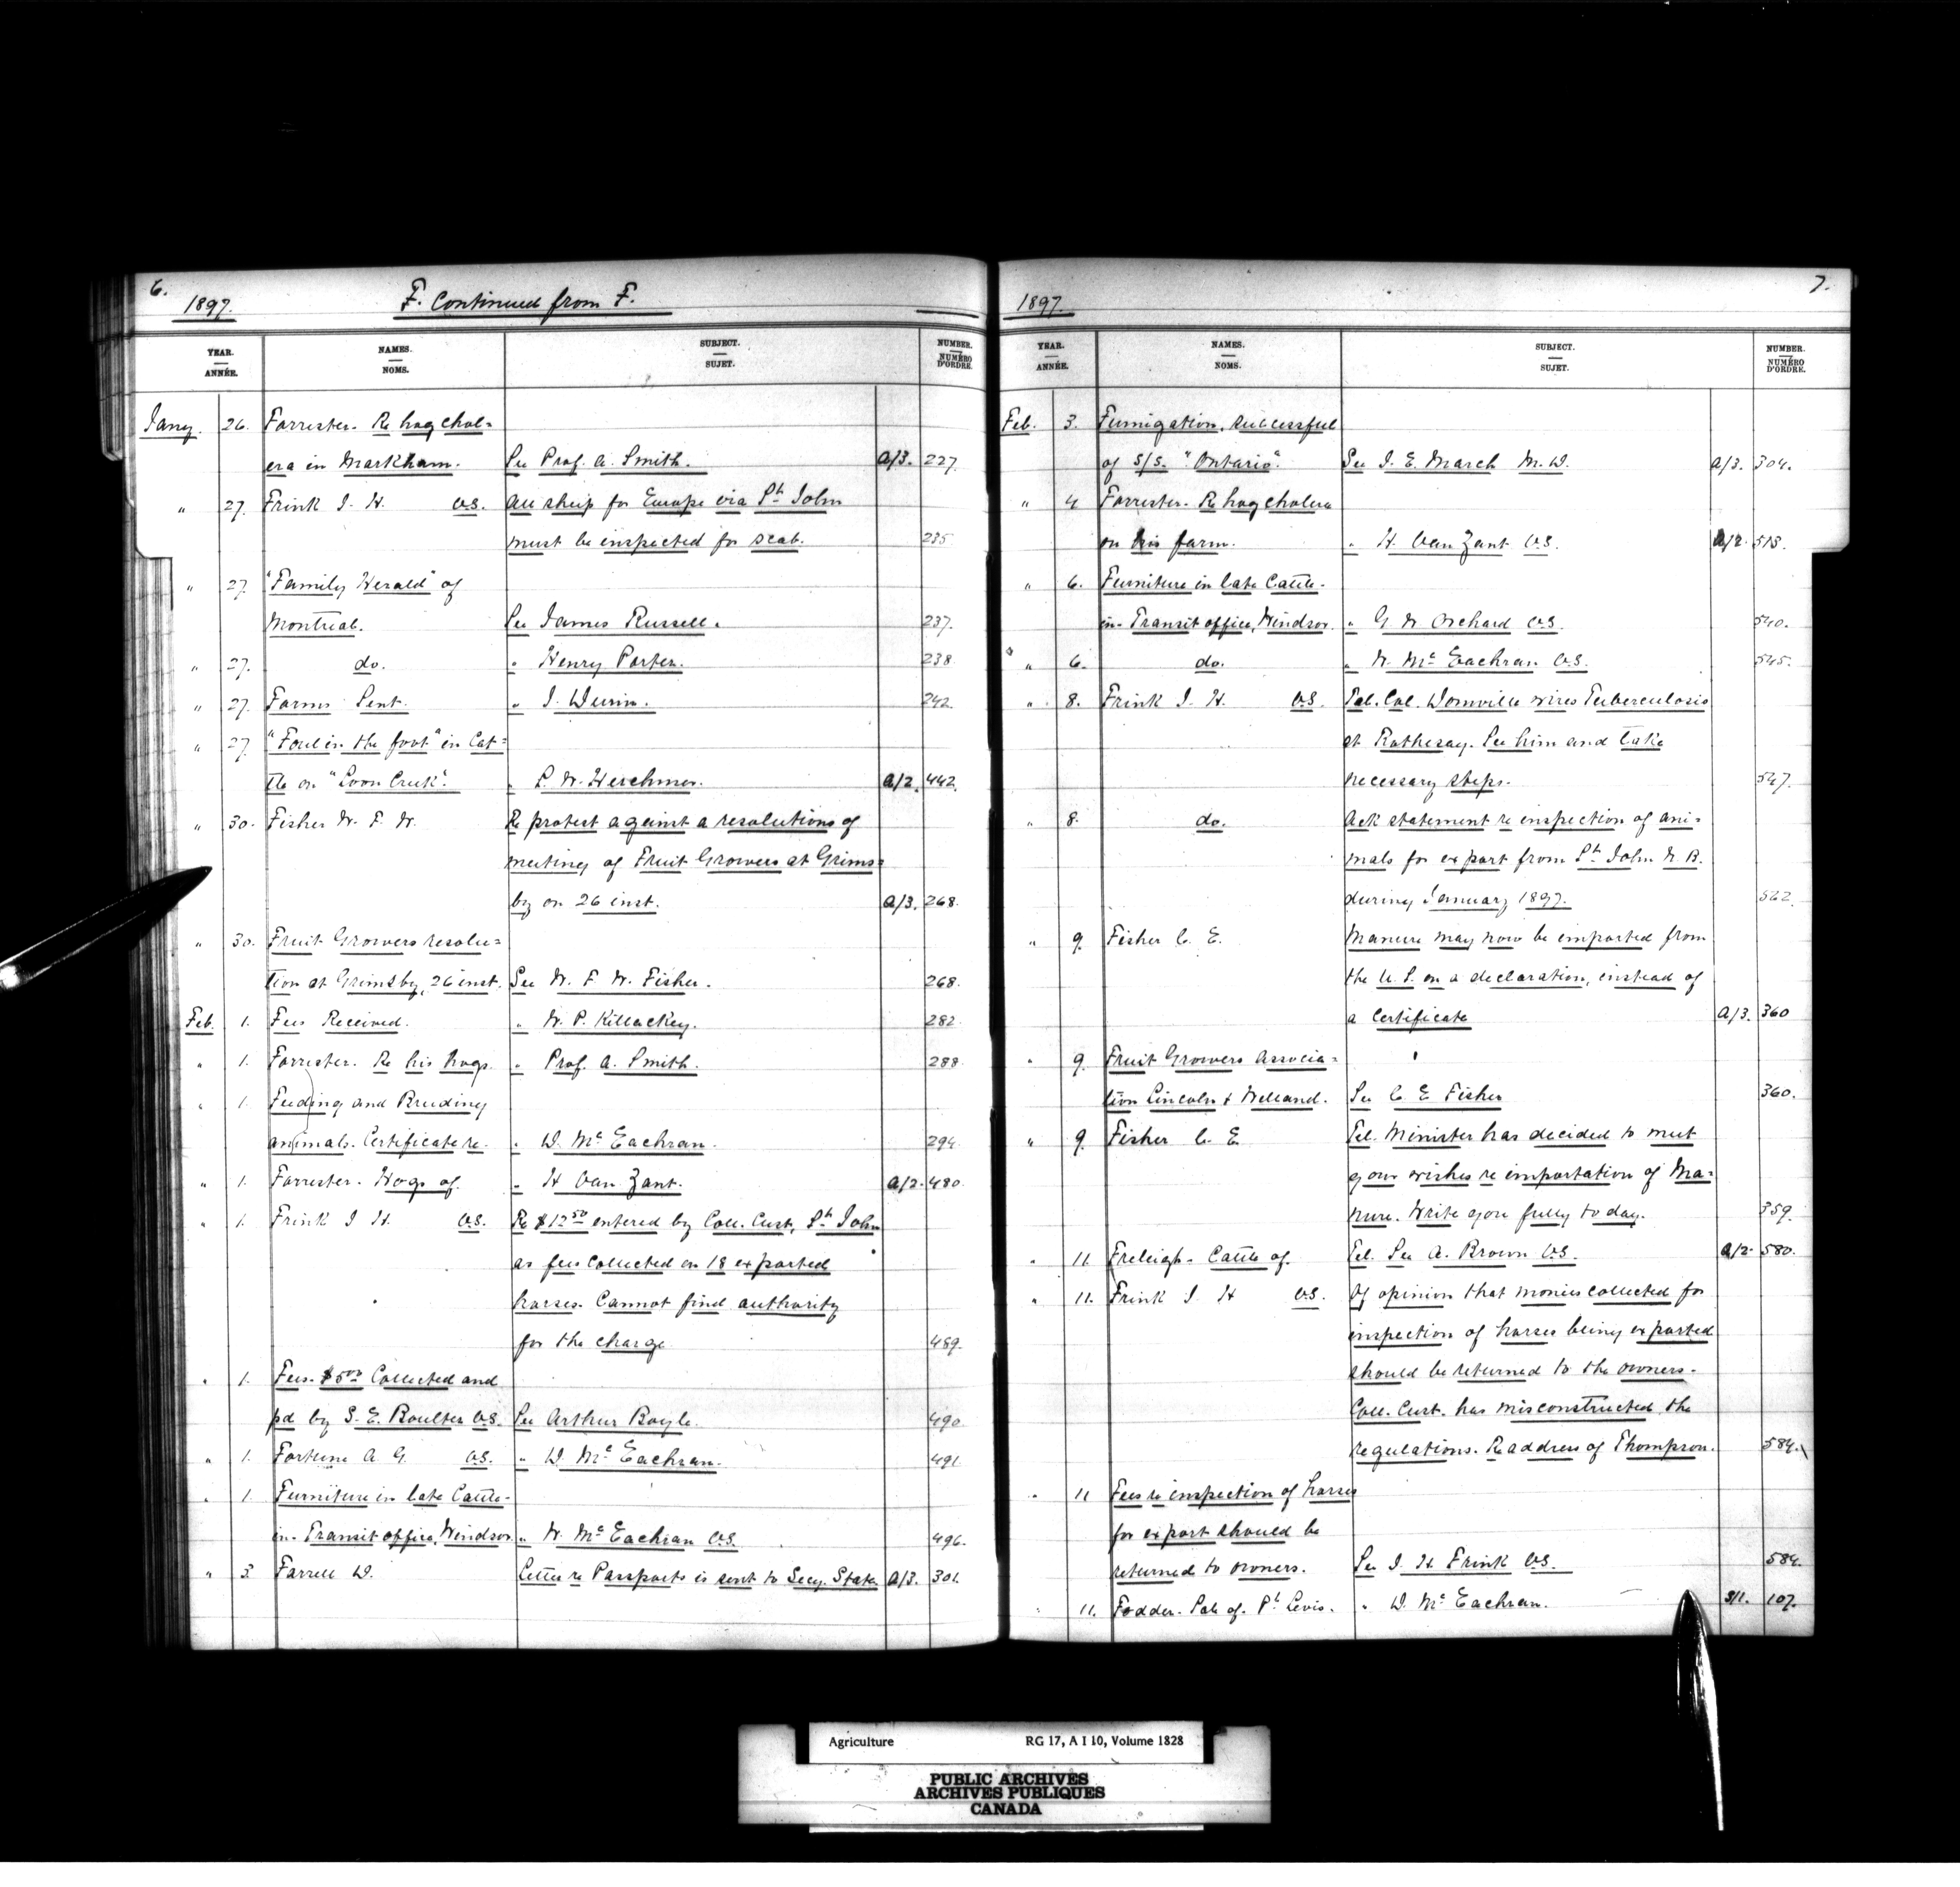 6.
1897. F. Continued from F.
YEAR. ANNÉE. NAMES. NOMS. SUBJECT. SUJET. NUMBER. NUMÉRO D'ORDRE.
Jany. 26. Forrester. Re hog chol=
era in Markham. See Prof. A. Smith. A/3. 227.
" 27. Frink J. H. V.S. All sheep for Europe via St. John
must be inspected for scab. 235
" 27. "Family Herald" of
Montreal. See James Russell. 237.
" 27. do. " Henry Porter. 238
" 27. Farms Sent. " J. 242.
" 27 "Foul in the foot" in Cat=
tle on "Loon Creek". " L. W. Herchmer. A/2. 442.
" 30. Fisher W. F. W. Re protest against a resolutions of
meeting of Fruit Growers at Grims=
by on 26 inst. A/3. 268.
" 30. Fruit Growers resolu=
tion at Grimsby, 26 inst. See W. F. W. Fisher. 268.
Feb. 1. Fees Received. " W. P. Killackey. 282.
" 1. Forrester. Re his hogs. " Prof. A. Smith. 288.
" 1. Feeding and Breeding
animals. Certificate re. " D. McEachran. 294.
" 1. Forrester. Hogs of. " H Van Zant. A/2. 480.
" 1. Frink J H. V.S. Re $12.50 entered by Coll. Cust, St. John
as fees collected on 18 exported
horses. Cannot find authority
for the charge 489.
" 1. Fees. $5.00 Collected and
pd by S. E. Boulter V.S. See Arthur Boyle. 490.
" 1. Fortune A. G. V.S. " D. McEachran. 491.
" 1. Furniture in late Cattle-
in-Transit office, Windsor. " W. McEachran V.S. 496.
" 3. Farrell D. Letter re Passports is sent to Secy. State A/3. 301.
7.
1897.
YEAR. ANNÉE. NAMES. NOMS. SUBJECT. SUJET. NUMBER. NUMÉRO D'ORDRE.
Feb. 3. Fumigation, successful
of S/S. "Ontario". See J. E. March M.D. A/3. 304.
" 4 Forrester. Re hog cholera
on his farm. " H. Van Zant V.S. A/2. 513.
" 6. Furniture in late Cattle-
in-Transit office, Windsor. " G W Orchard V.S. 540.
" 6. do. " W. McEachran V.S. 545.
" 8. Frink J. H. V.S. Tel. Col. Domville wires Tuberculosis
at Rothesay. See him and take
necessary steps. 547.
" 8. do. Ack statement re inspection of ani=
mals for export from St. John N.B.
during January 1897. 562.
" 9. Fisher C. E. Manure may now be imported from
the U.S. on a declaration, instead of
a Certificate A/3. 360
" 9. Fruit Growers Associa=
tion Lincoln & Welland. See C. E Fisher 360.
" 9. Fisher C. E Tel. Minister has decided to meet
your wishes re importation of Ma=
nure. Write you fully today. 359.
" 11. Freleigh. Cattle of. Tel. See A. Brown V.S. A/2. 580.
" 11. Frink J. H V.S. Of opinion that monies collected for
inspection of horses being exported
should be returned to the owners.
Coll. Cust. has misconstructed the
regulations. Re address of Thompson. 584.
" 11 Fees re inspection of horses
for export should be
returned to owners. See J. H. Frink V.S. 584.
" 11. Fodder. Sale of. Pt. Levis. " D. McEachran. S/1. 107.
Agriculture RG 17, A I 10, Volume 1828
PUBLIC ARCHIVES
ARCHIVES PUBLIQUES
CANADA